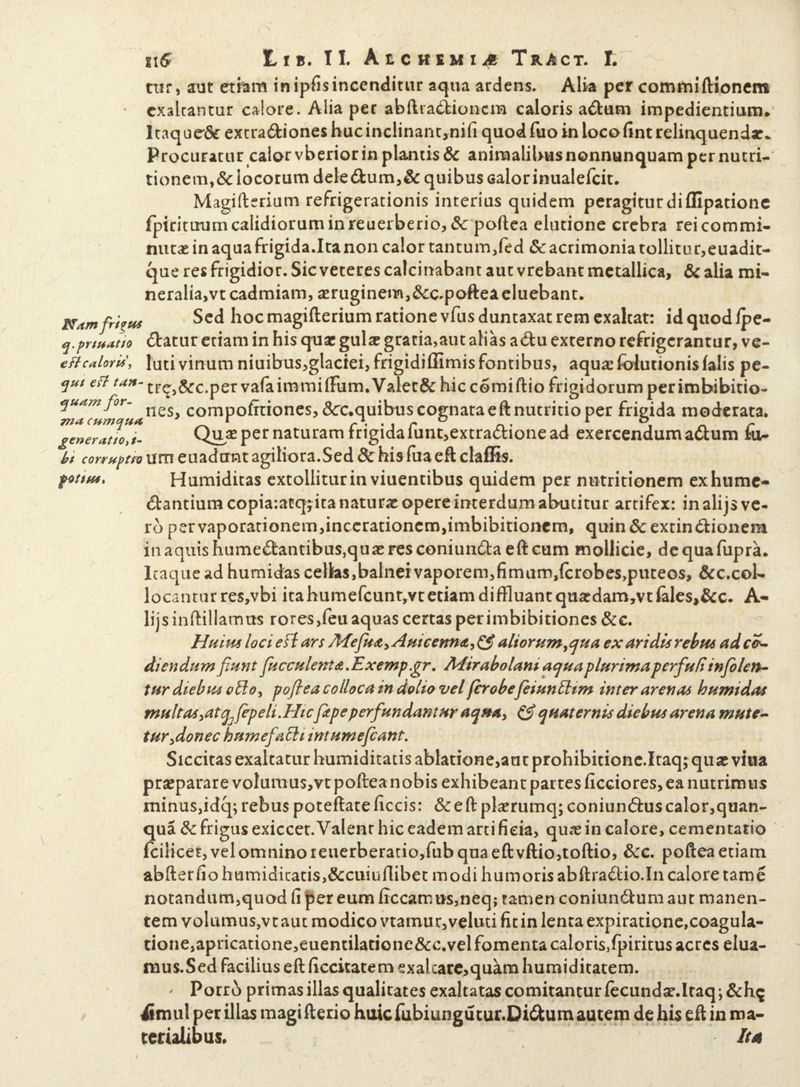 116 LIB. II. ALCHEMIÆ TRACT. I.
tur, aut etiam in ipſis incenditur aqua ardens. Alia per commiſtionem
exaltantur calore. Alia per abſtractionem caloris actum impedientium.
Itaque & extractiones huc inclinant, niſi quod ſuo in loco ſint relinquendæ.
Procuratur calor vberior in plantis & animalibus nonnunquam per nutri-
tionem, & locorum delectum, & quibus calor inualeſcit.
Magiſterium refrigerationis interius quidem peragitur diſſipatione
ſpirituum calidiorum in reuerberio, & poſtea elutione crebra rei commi-
nutæ in aqua frigida. Ita non calor tantum, ſed & acrimonia tollitur, euadit-
que res frigidior. Sic veteres calcinabant aut vrebant metallica, & alia mi-
neralia, vt cadmiam, æruginem, &c. poſtea eluebant.
Sed hoc magiſterium ratione vſus duntaxat rem exaltat: id quod ſpe-
ctatur etiam in his quæ gulæ gratia, aut aliàs actu externo refrigerantur, ve-
luti vinum niuibus, glaciei, frigidiſſimis fontibus, aquæ ſolutionis ſalis pe-
trę, &c. per vaſa immiſſum. Valet & hic cõmiſtio frigidorum per imbibitio-
nes, compoſitiones, &c. quibus cognata eſt nutritio per frigida moderata.
Quæ per naturam frigida ſunt, extractione ad exercendum actum ſu-
um euadunt agiliora. Sed & his ſua eſt claſſis.
Nam frigus
q. priuatio
eſt caloris,
qui eſt tan-
quam for-
ma cumqua
generatio, i-
bi corruptio
potius.
Humiditas extollitur in viuentibus quidem per nutritionem ex hume-
ctantium copia: atq; ita naturæ opere interdum abutitur artifex: in alijs ve-
rò per vaporationem, incerationem, imbibitionem, quin & extinctionem
in aquis humectantibus, quæ res coniuncta eſt cum mollicie, de qua ſuprà.
Itaque ad humidas cellas, balnei vaporem, fimum, ſcrobes, puteos, &c. col-
locantur res, vbi ita humeſcunt, vt etiam diffluant quædam, vt ſales, &c. A-
lijs inſtillamus rores, ſeu aquas certas per imbibitiones &c.
Huius loci eſt ars Meſuæ, Auicennæ, & aliorum, qua ex aridis rebus ad cõ-
diendum fiunt ſucculenta. Exemp. gr. Mirabolani aqua plurima perfuſi inſolen-
tur diebus octo, poſtea colloca in dolio vel ſcrobe ſeiunctim inter arenas humidas
multas, atq; ſepeli. Hic ſæpe perfundantur aqua, & quaternis diebus arena mute-
tur, donec humefacti intumeſcant.
Siccitas exaltatur humiditatis ablatione, aut prohibitione. Itaq; quæ viua
præparare volumus, vt poſtea nobis exhibeant partes ſicciores, ea nutrimus
minus, idq; rebus poteſtate ſiccis: & eſt plærumq; coniunctus calor, quan-
quã & frigus exiccet. Valent hic eadem artificia, quæ in calore, cementatio
ſcilicet, vel omnino reuerberatio, ſub qua eſt vſtio, toſtio, &c. poſtea etiam
abſterſio humiditatis, & cuiuſlibet modi humoris abſtractio. In calore tamẽ
notandum, quod ſi per eum ſiccamus, neq; tamen coniunctum aut manen-
tem volumus, vt aut modico vtamur, veluti fit in lenta expiratione, coagula-
tione, apricatione, euentilatione &c. vel fomenta caloris, ſpiritus acres elua-
mus. Sed facilius eſt ſiccitatem exaltare, quàm humiditatem.
Porrò primas illas qualitates exaltatas comitantur ſecundæ. Itaq; & hę
ſimul per illas magiſterio huic ſubiungũtur. Dictum autem de his eſt in ma-
terialibus. Ita